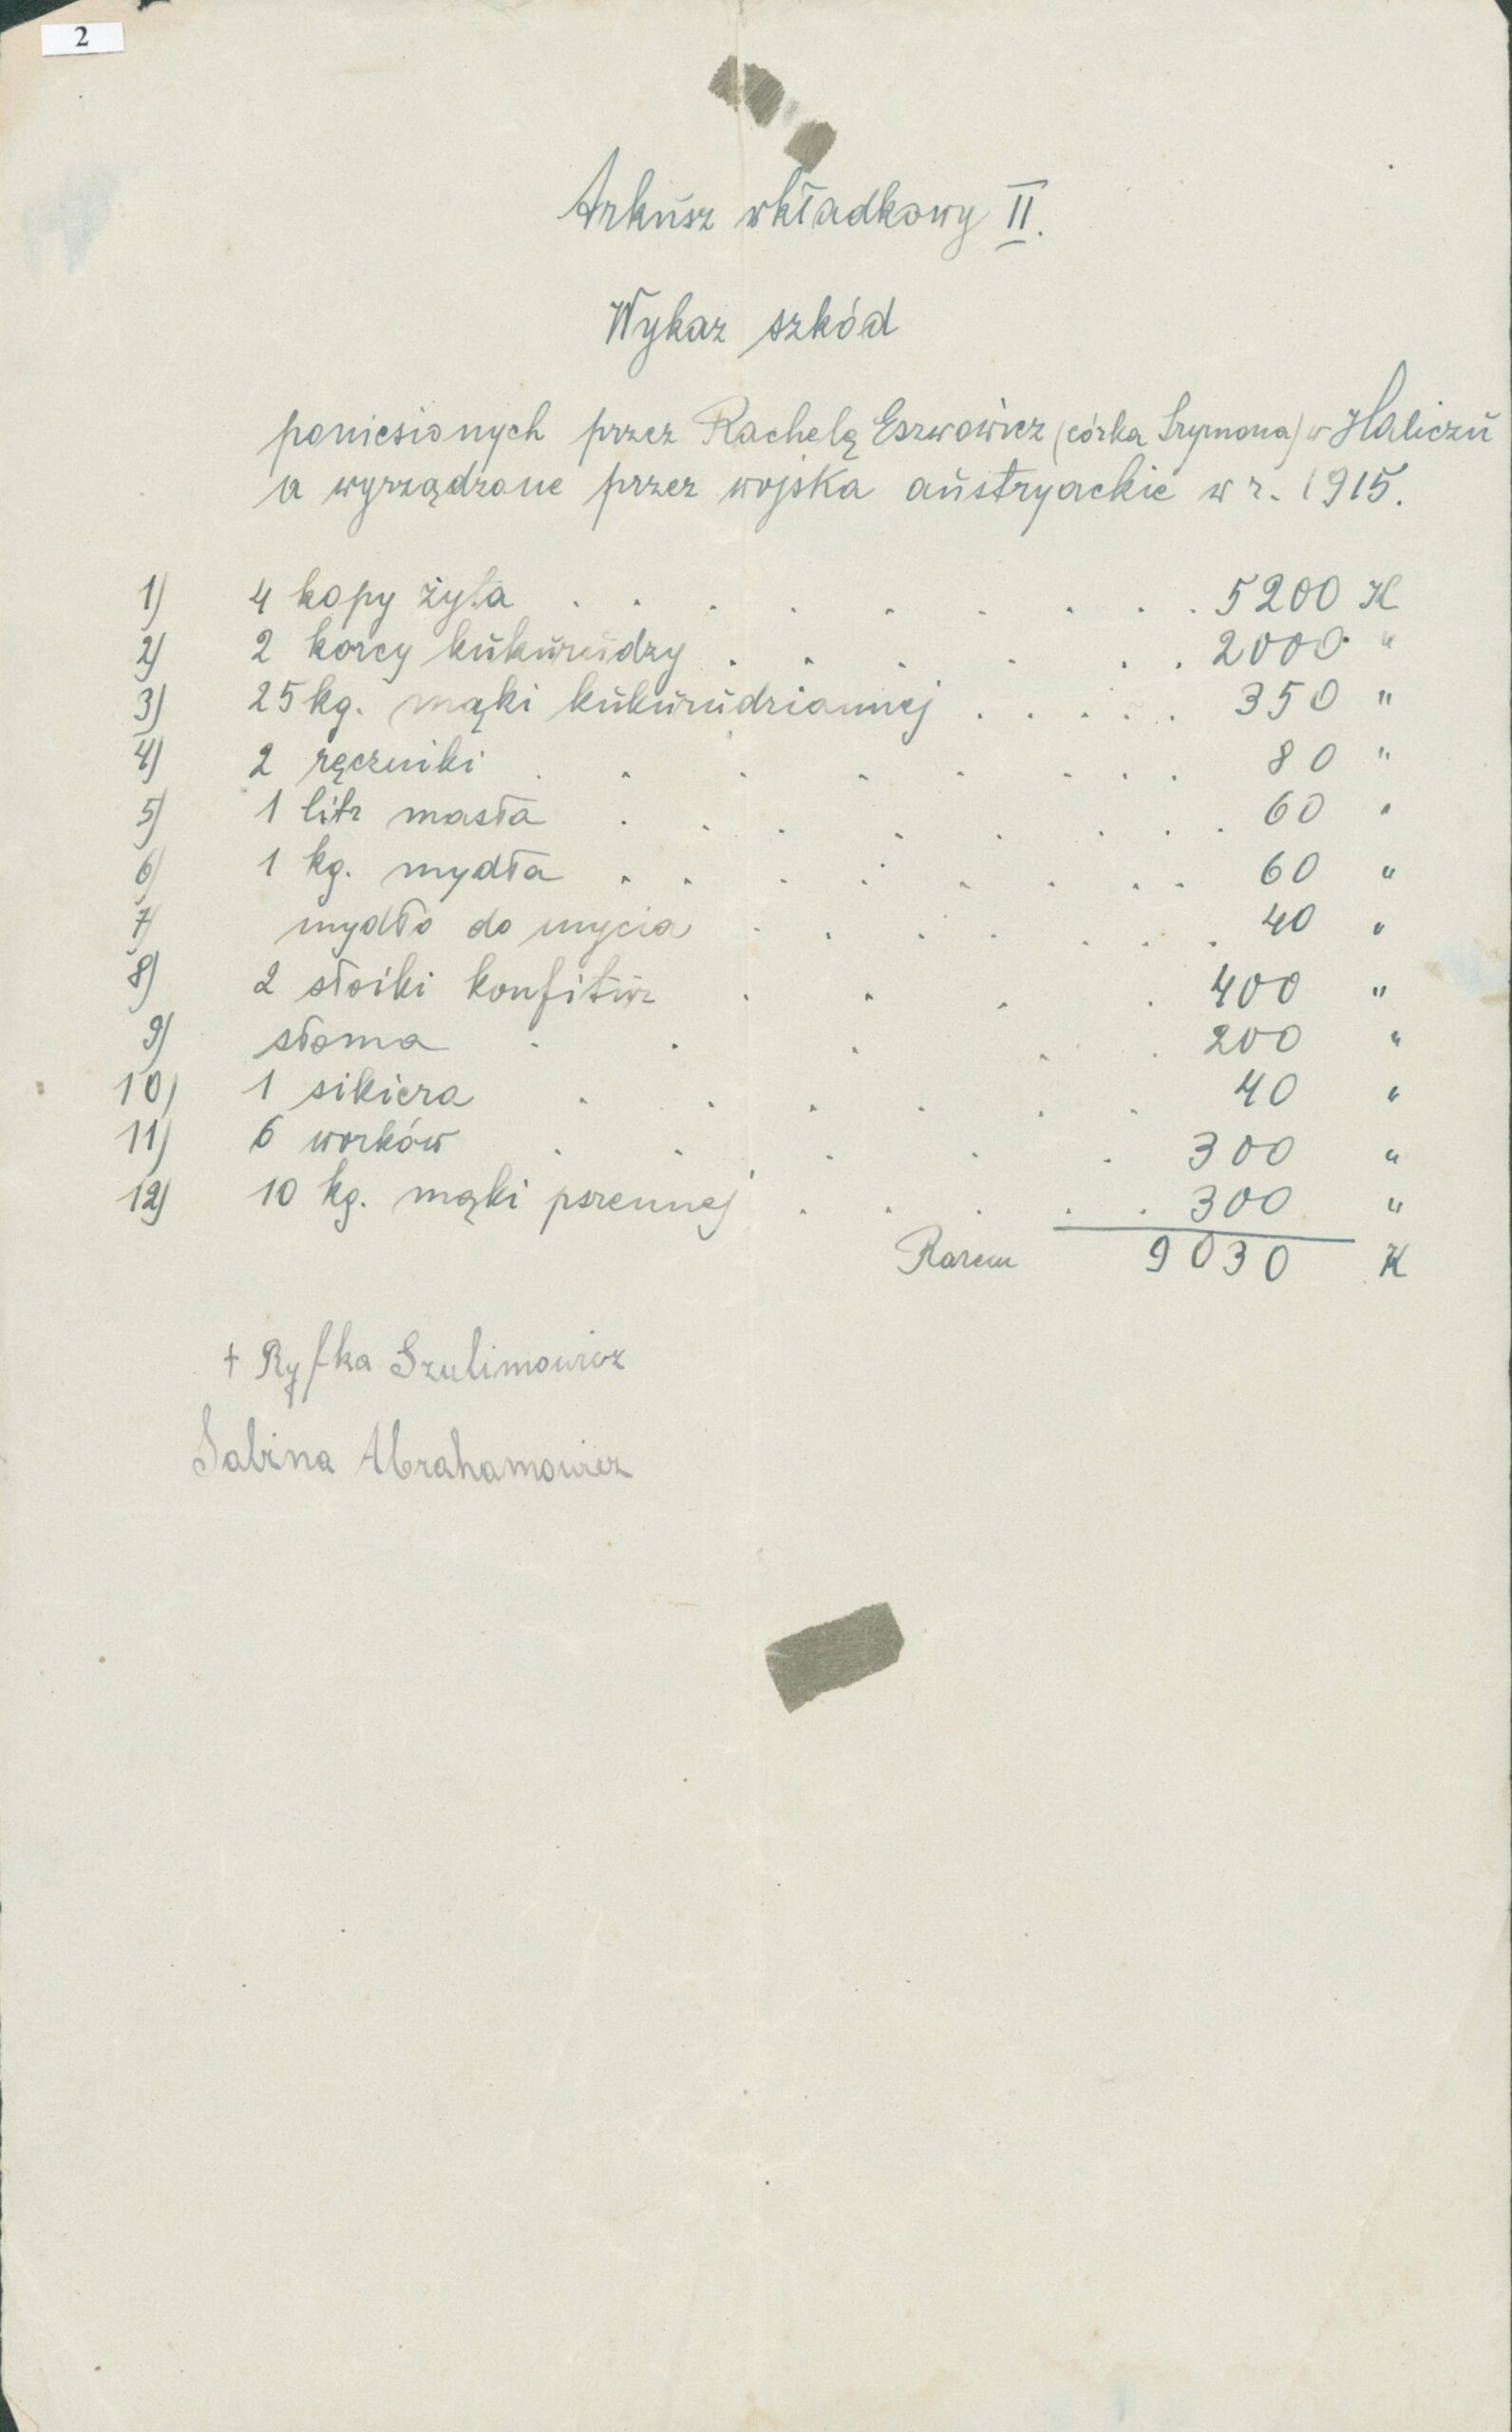 2
Arkusz wkładkowy II.
Wykaz szkód
poniesionych przez Rachelę Eszwowicz (córka Szymona) w Haliczu
a wyrządzone przez wojska austryackie w r. 1915.
1) 4 kopy żyta . . . . . . . . . 5200 K
2) 2 korcy kukurudzy . . . . . . 2000 "
3) 25 kg. mąki kukurudziannej . . . . . 350 "
4) 2 ręczniki . . . . . . . . 80 "
5) 1 litr masła . . . . . . . . 60 "
6) 1 kg. mydła . . . . . . . . 60 "
7) mydło do mycia . . . . . . . 40 "
8) 2 słoiki konfitur . . . . 400 "
9) słoma . . . . . 200 "
10) 1 sikiera . . . . . . 40 "
11) 6 worków . . . . . 300 "
12) 10 kg. mąki pszennej . . . . . 300 "
Razem 9030 K
+ Ryfka Szulimowicz
Sabina Abrahamowicz